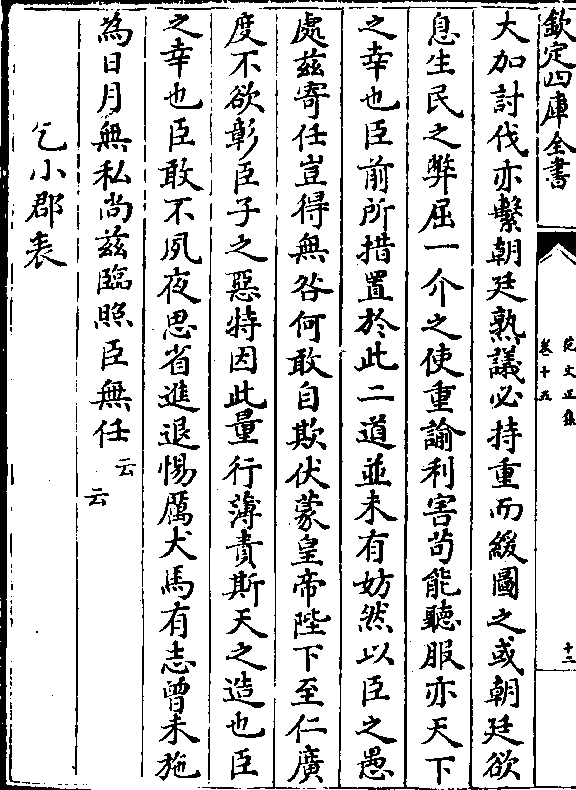 欽定四庫全書
范文正集
卷十五
十二
大加討伐亦繫朝廷熟議必持重而緩圖之或朝廷欲
息生民之弊屈一介之使重諭利害苟能聽服亦天下
之幸也臣前所措置於此二道並未有妨然以臣之愚
處茲寄任豈得無咎何敢自欺伏蒙皇帝陛下至仁廣
度不欲彰臣子之惡特因此量行薄責斯天之造也臣
之幸也臣敢不夙夜思省進退惕厲犬馬有志曾未施
為日月無私尚茲臨照臣無任云云
乞小郡表